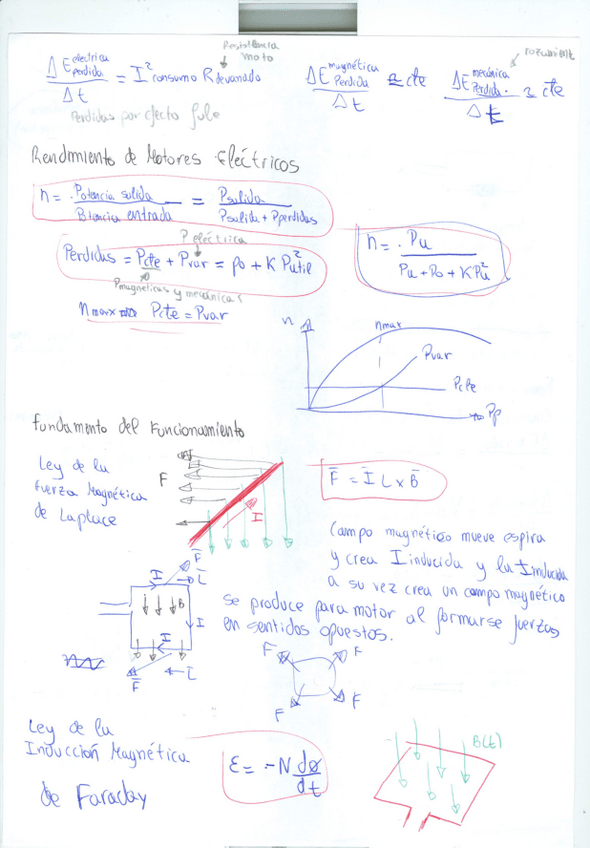 Resistencia moto
rozamiento
ΔE eléctrica perdida / Δt = I² consumo R devanado
ΔE magnética perdida / Δt ≈ cte
ΔE mecánica perdida / Δt ≈ cte
Perdidas por efecto Jule
Rendimiento de Motores Eléctricos
n = Potencia salida / Potencia entrada = Psalida / Psalida + Pperdidas
P eléctrica
Perdidas = Pcte + Pvar = P0 + K P²útil
Pmagneticas y mecánicas
n = Pu / Pu + P0 + K Pu²
nmax Pcte = Pvar
n
nmax
Pvar
Pcte
Pp
Fundamento del Funcionamiento
Ley de la
Fuerza Magnética
de Laplace
F
I
F = I L x B
Campo magnético mueve espira
y crea I inducida y la I inducida
a su vez crea un campo magnético
se produce par motor al formarse fuerzas
en sentidos opuestos.
F
I
L
B
I
I
L
F
F
F
F
F
Ley de la
Inducción Magnética
de Faraday
ε = -N dø / dt
B(t)